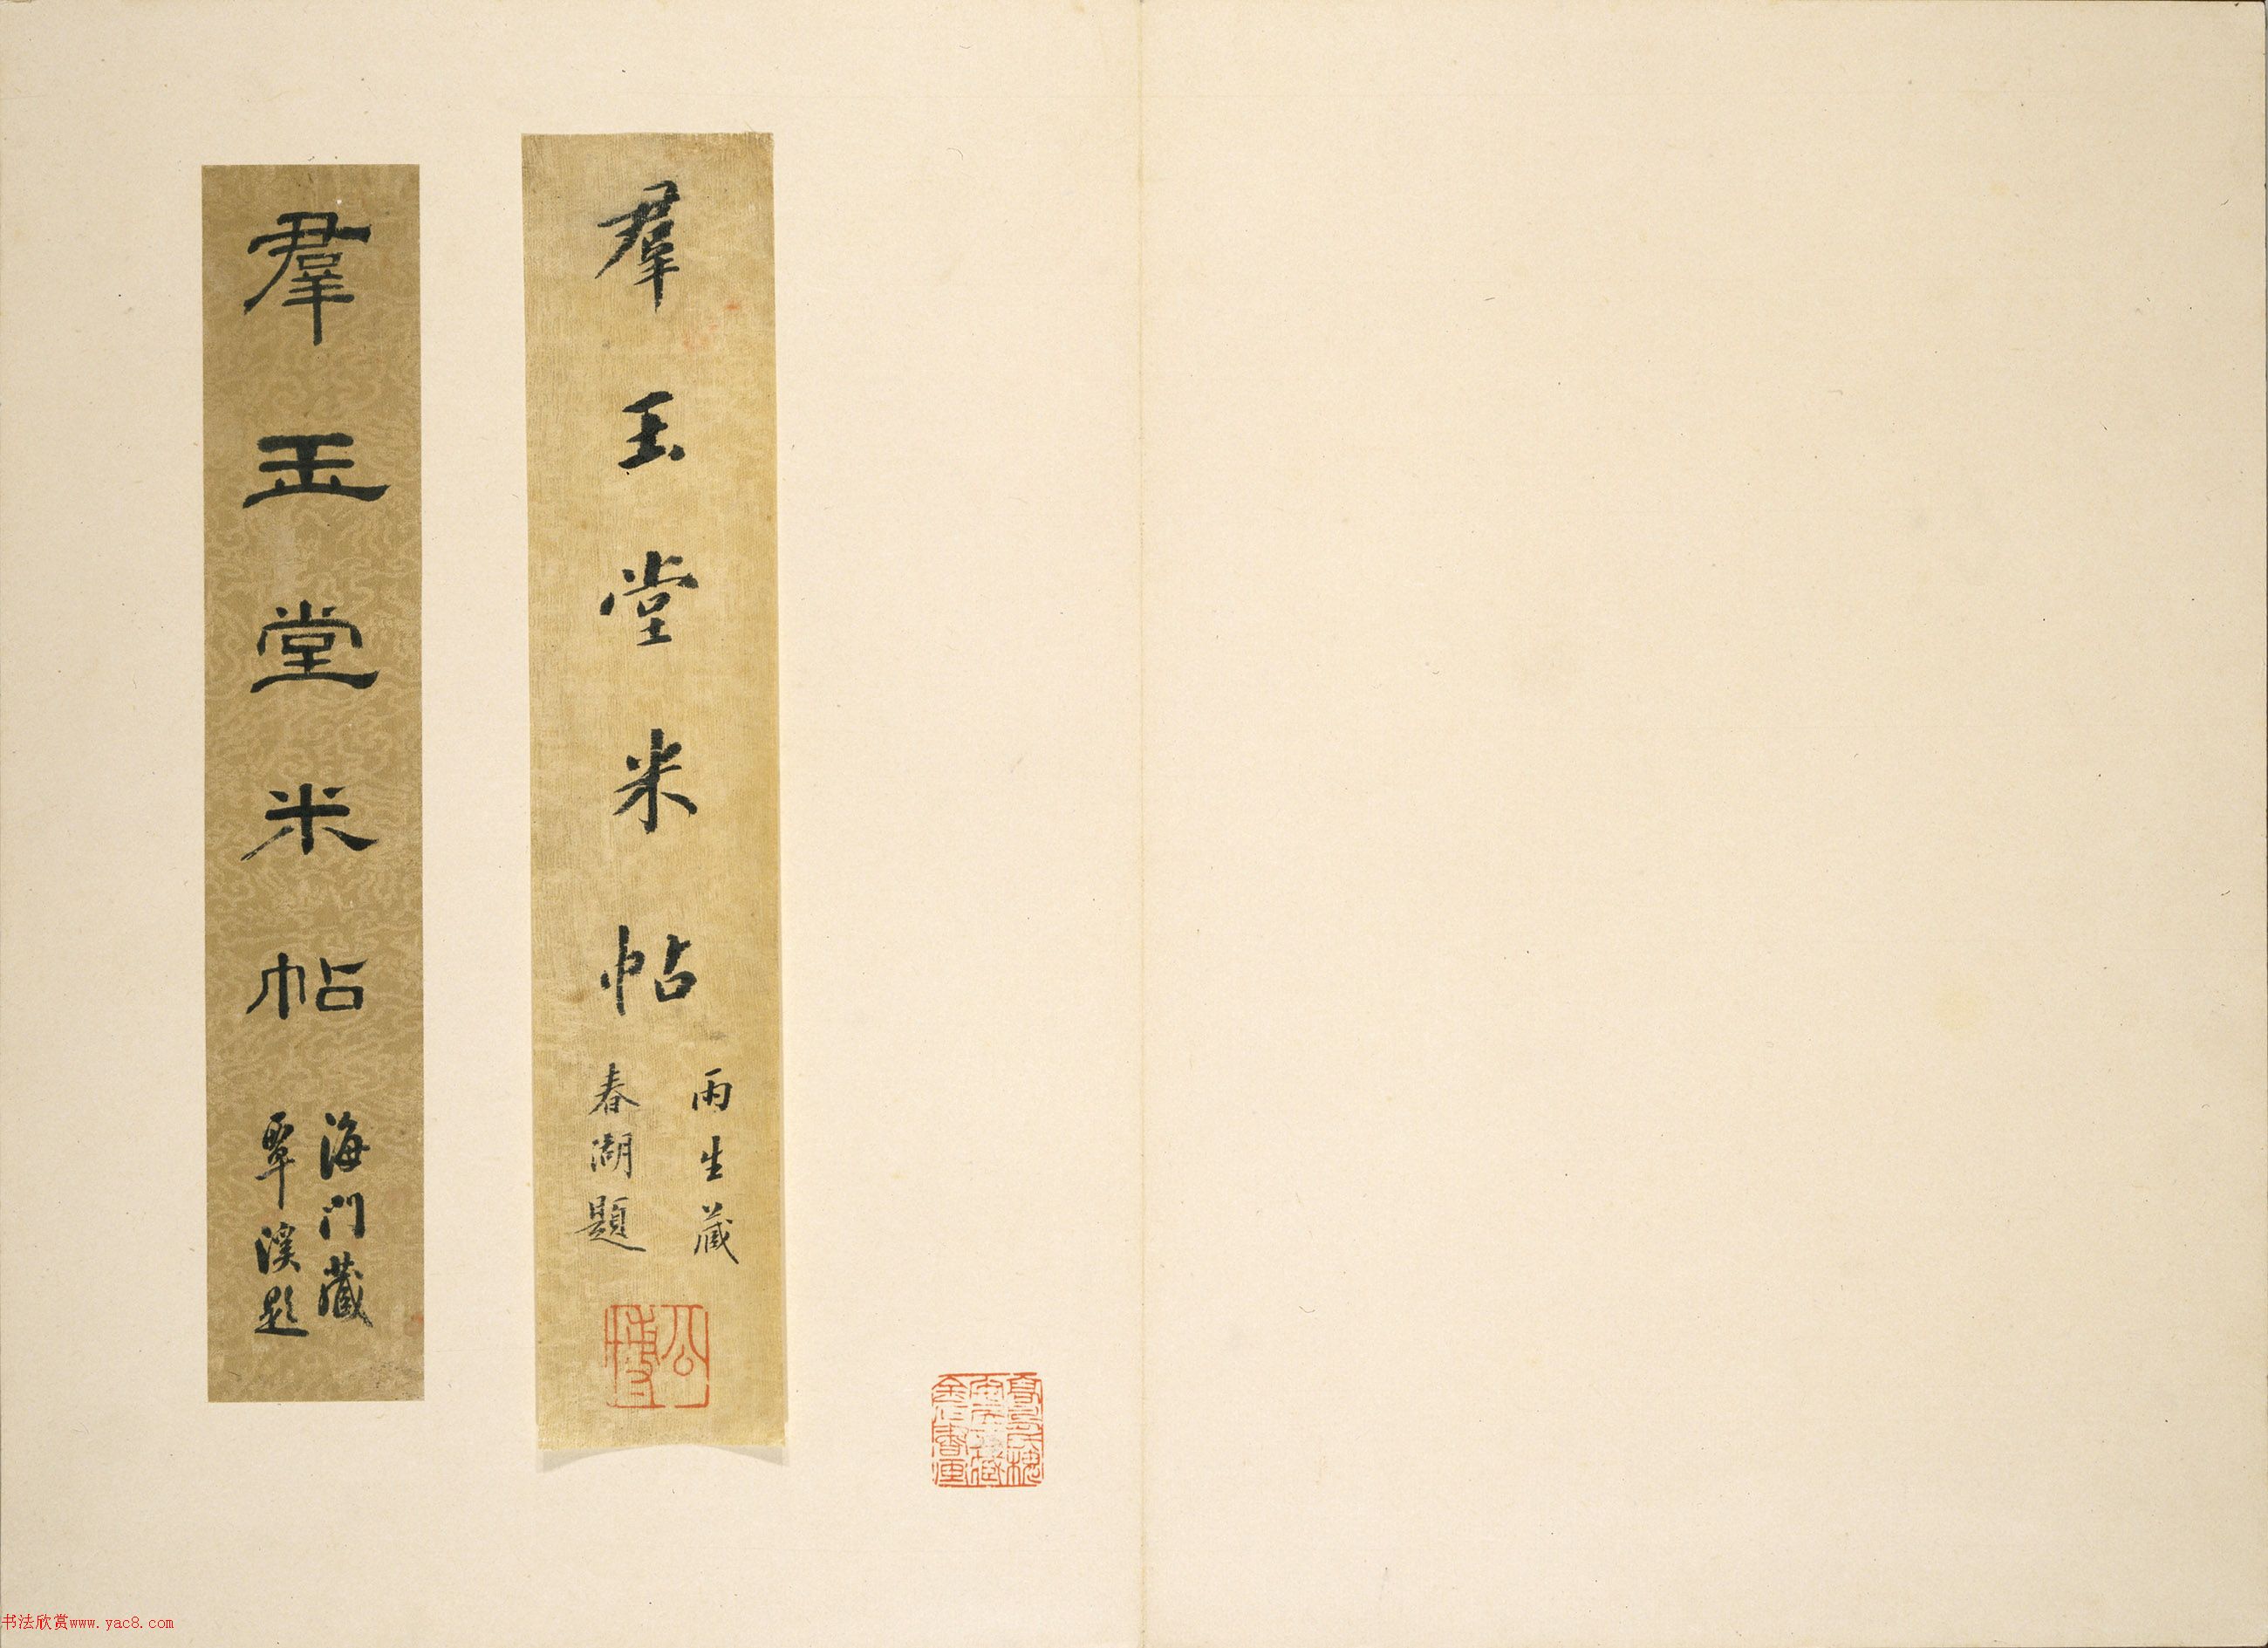 羣玉堂米帖
雨生藏
春湖題
公博
羣玉堂米帖
海門藏
覃溪題
书法欣赏www.yac8.com